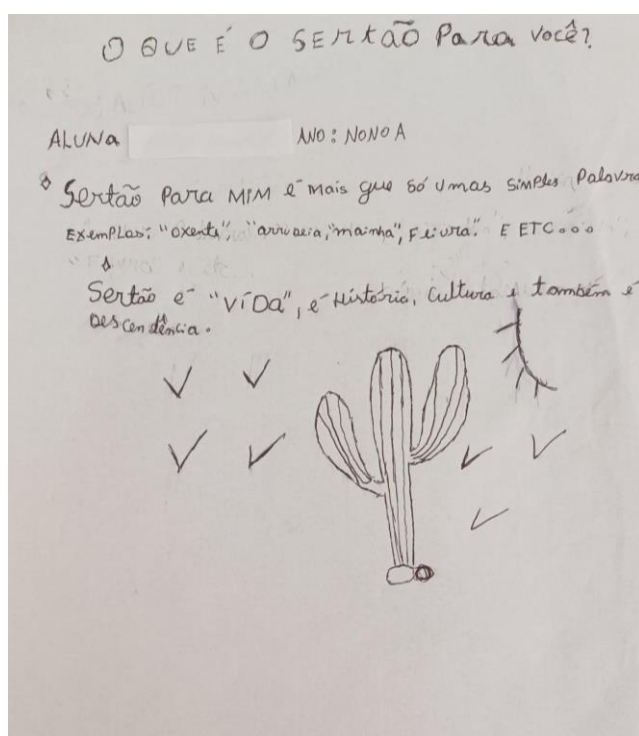 O QUE É O SERTÃO Para você?
ALUNA ANO: NONO A
Sertão Para MIM é mais que só umas simples Palavra
Exemplos: "oxente", "arri", "mainha", E ETC...
Sertão é "VíDa", é História, Cultura e também é
DEScendência.